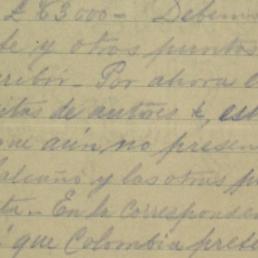 £ 63000 - Debemos
de y otros puntos
cribir. - Por ahora
itas de autores &, est
que aún no presen
alcaño y las otras p
ta. - En la corresponden
que Colombia prese